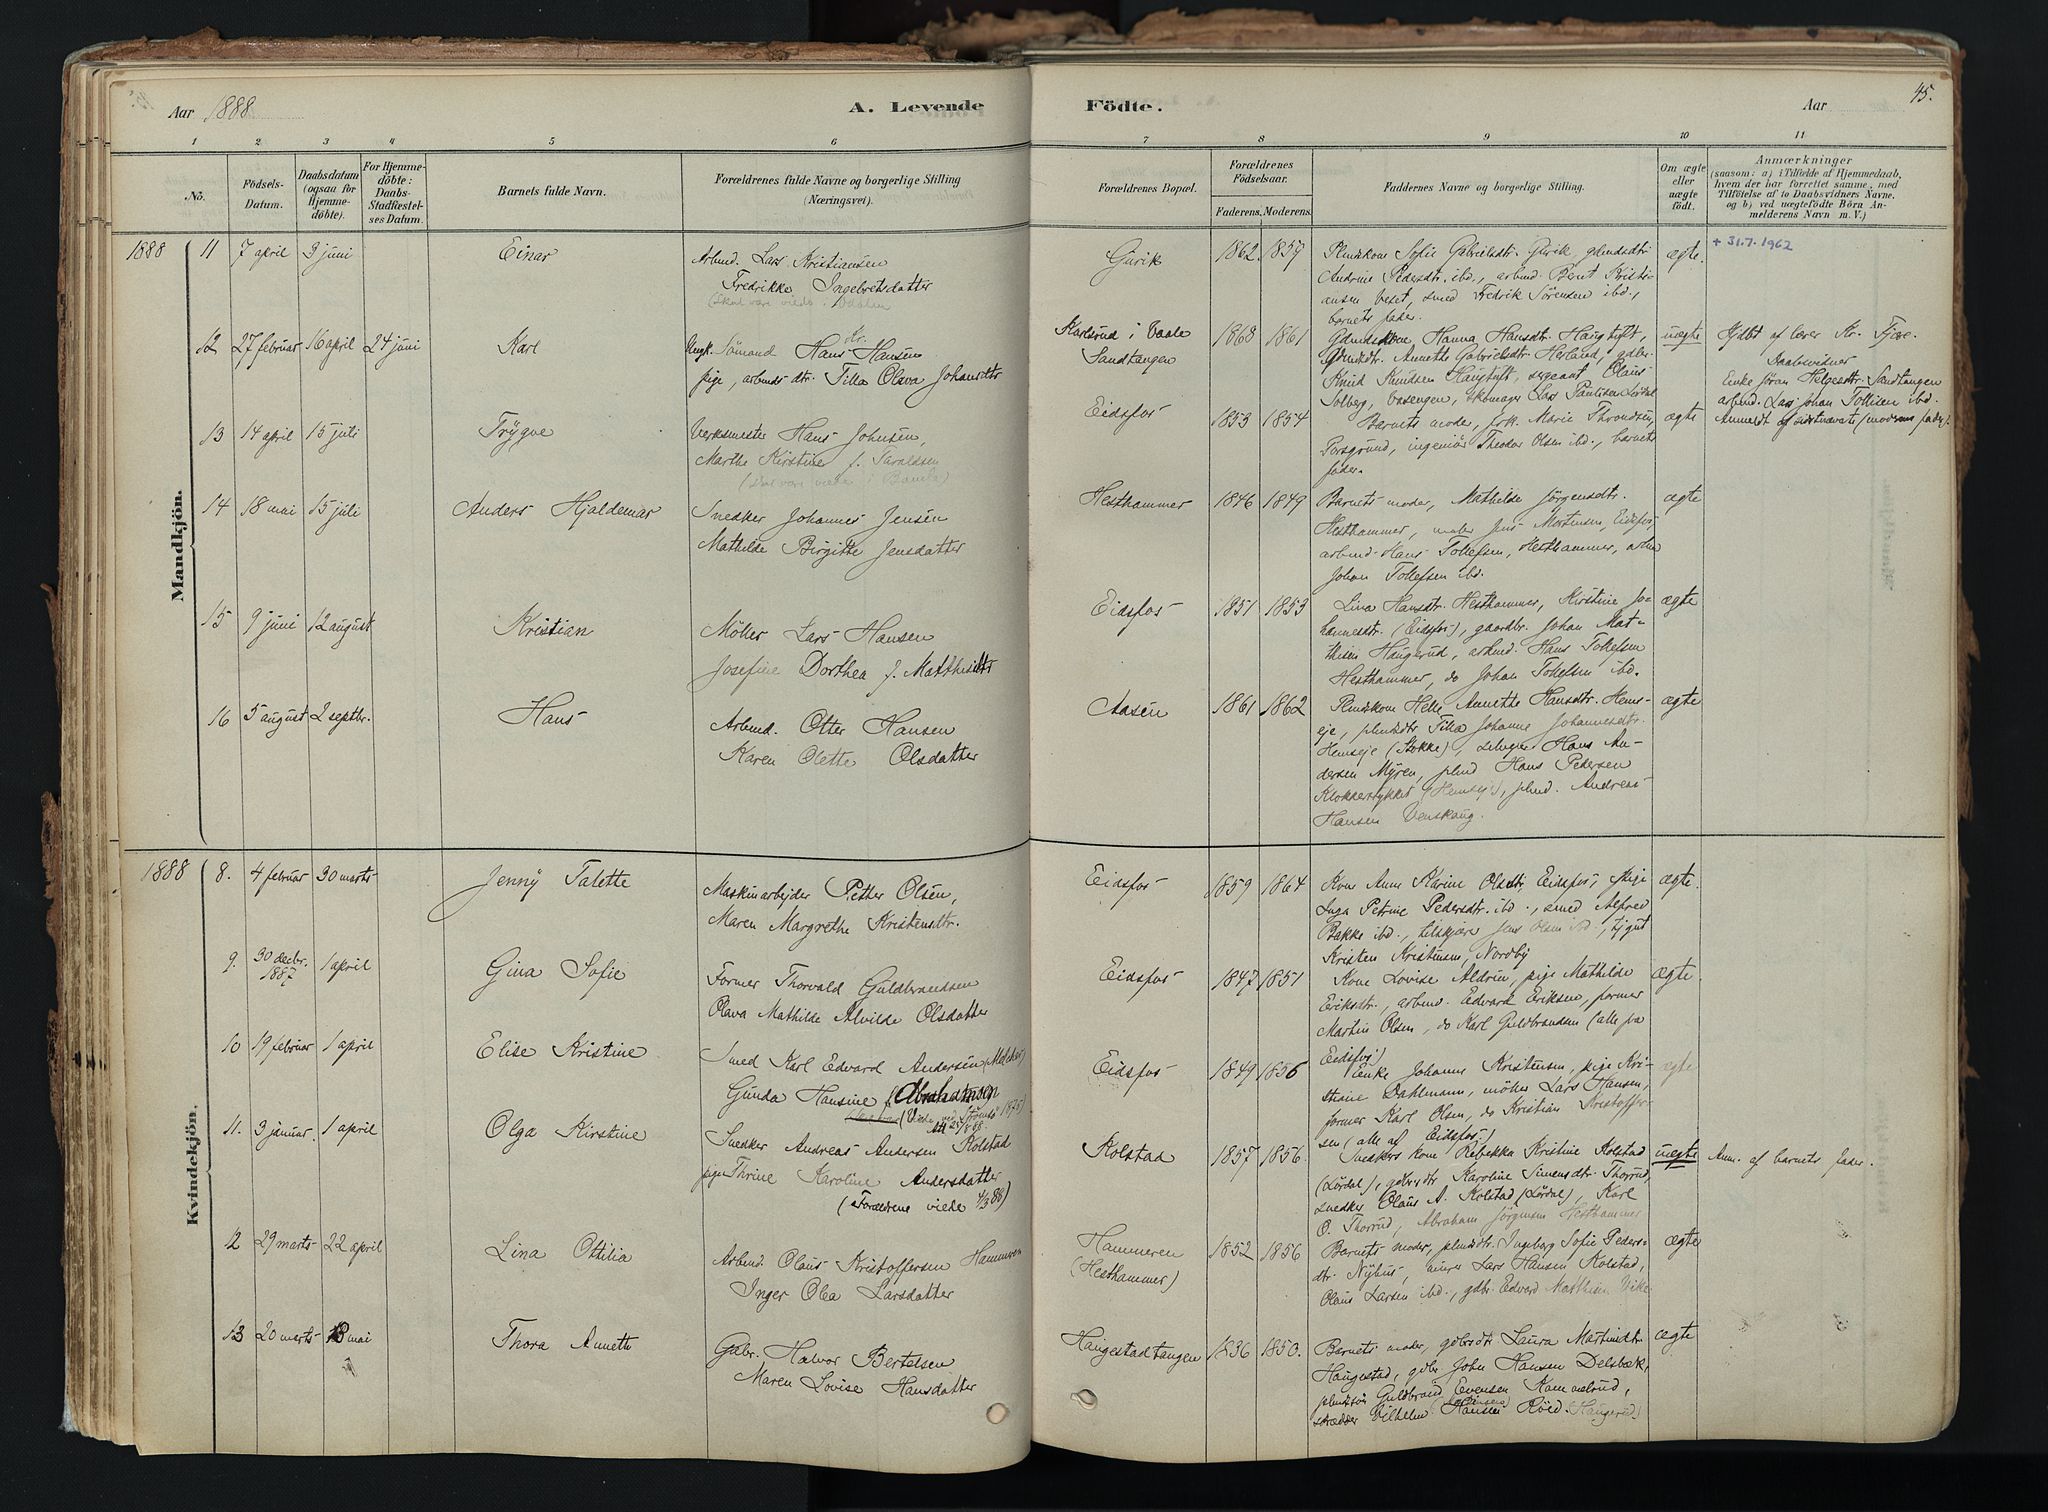 Aar 1888
A. Levende
Födte.
Aar
45.
1 2 3 4 5 6 7 8 9 10 11
No.
Födsels-
Datum.
Daabsdatum
(ogsaa for
Hjemme-
döbte).
For Hjemme-
döbte:
Daabs-
Stadfestel-
ses Datum.
Barnets fulde Navn.
Forældrenes fulde Navne og borgerlige Stilling
(Næringsvei).
Forældrenes Bopæl.
Forældrenes
Födselsaar.
Faderens. Moderens.
Faddernes Navne og borgerlige Stilling.
Om ægte
eller
uægte
födt.
Anmærkninger
(saasom: a) i Tilfælde af Hjemmedaab,
hvem der har forrettet samme, med
Tilföielse af to Daabsvidners Navne,
og b) ved uægtefödte Börn An-
melderens Navn m. V.)
Mandkjön.
1888 11 7 april 3 juni Einar
Arbmd. Lars Kristiansen
Fredrikke Ingebretsdatter
(skal være viede i
Gurik 1862 1859
Plmdskone Sofie Gabrielsdtr. Gurik, gdmdsdtr.
Andrine Pedersdtr. ibd., arbmd. Bernt Kristi-
ansen smed Fredrik Sörensen ibd.,
barnets fader.
ægte. + 31.7.1962
12 27 februar 16 april 24 juni Karl
Ungk. Sömand Hans Kr. Hansen
pige, arbmds dtr. Tilla Olava Johansdtr
Karlsrud i Vaale
Sandtangen
1868 1861
Gdmdskone Hanna Hansdtr. Haugtuft,
Gdmdsdtr. Annette Gabrielsdtr. Herland, gdbr.
Knud Knudsen Haugtuft, sergeant Olaus
Solberg, skomager Lars Paulsen
uægte Hjdbt af lærer Kr. Fjære.
Daabsvidner
Enke Jöran Helgesdtr. Sandtangen
arbmd. Lars Johan Tollisen ibd.
Anmeldt af sidstnævnte (moderens fader).
13 14 april 15 juli Trygve
Verksmester Hans Johnsen,
Marthe Kirstine f. Taraldsen
(skal være viede i Bamle)
Eidsfos 1853 1854
Barnets moder, frk. Marie Throndsen,
Porsgrund, ingeniör Theodor Olsen ibd., barnets
fader.
ægte
14 18 mai 15 juli Anders Hjaldemar
Snedker Johannes Jensen
Mathilde Birgitte Jensdatter
Hesthammer 1846 1849
Barnets moder, Mathilde Jörgensdtr.
Hesthammer, maler Jens Mortensen, Eidsfos,
arbmd. Hans Tollefsen, Hesthammer, arbm
Johan Tollefsen ibd.
ægte
15 9 juni 12 august Kristian
Möller Lars Hansen
Josefine Dorthea f. Matthisdtr
Eidsfos 1851 1853
Lina Hansdtr. Hesthammer, Kirstine Jo-
hannesdtr. (Eidsfos), gaardbr. Johan Mat-
thisen Haugerud, arbmd. Hans Tollefsen
Hesthammer, do Johan Tollefsen ibd.
ægte
16 5 august 2 septbr. Hans
Arbmd. Otter Hansen
Karen Olette Olsdatter
Aasen 1861 1862
Plmdskone Helle Annette Hansdtr. Hems-
eje, plmdsdtr Tilla Johanne Johannesdtr.
Hemseje (Stokke), selveier Hans An-
dersen Myren, plmd Hans Pedersen
Klokkerstykket (Hemseje), plmd. Andreas
Hansen Venskaug.
ægte
Kvindekjön.
1888 8. 4 februar 30 marts Jenny Talette
Maskinarbejder Petter Olsen,
Maren Margrethe Kristensdtr.
Eidsfos 1859 1864
Kone Anne Karine Olsdtr, Eidsfos, pige
Inga Petrine Pedersdtr. ibd., smed Alfred
Bakke ibd., tilskjærer Jens Olsen ibd.,
Kristen Kristensen, Nordby
ægte.
9. 30 decbr. 1887 1 april Gina Sofie
Former Thorvald Guldbrandsen
Olava Mathilde Alvilde Olsdatter
Eidsfos 1847 1851
Kone Lovise Aldrin, pige Mathilde
Eriksdtr., arbmd. Edvard Eriksen, former
Martin Olsen, do Karl Guldbrandsen (alle paa
Eidsfos)
ægte.
10 19 februar 1 april Elise Kristine
Smed Karl Edvard Andersen (Melcher)
Gunda Hansine f. Abrahamsen
(Viede ved Strömsö 1875)
Eidsfos 1849 1856
Enke Johanne Kristensen, pige Kri-
stiane Dahlmann, möller Lars Hansen,
former Karl Olsen, do Kristian Kristoffer-
sen (alle af Eidsfos.)
ægte
11. 3 januar 1 april Olga Kirstine
Snedker Andreas Andersen Kolstad
pige Thrine Karoline Andersdatter
(Forældrene viede 4/3 88)
Kolstad 1857 1856.
Snedkers kone Rebekka Kristine Kolstad
(Lördal), gdbrsdtr Karoline Simensdtr. Thorrud,
snedker Olaus A. Kolstad (Lördal), Karl
O. Thorrud, Abraham Jörgensen Hesthammer
uægte Anm. af barnets fader.
12 29 marts 22 april Lina Ottilia
Arbmd. Olaus Kristoffersen Hammeren
Inger Olea Larsdatter
Hammeren
(Hesthammer)
1852 1856
Barnets moder, plmdsdtr. Ingeborg Sofie Peders-
dtr. Nyhus, murer Lars Hansen Kolstad,
Olaus Larsen ibd., gdbr. Edvard Matthisen Vike.
ægte
13 20 marts 13 mai Thora Annette
Gdbr. Halvor Bertelsen
Maren Lovise Hansdatter
Haugestadtangen 1836 1850.
Barnets moder, gdbrsdtr Laura Martinsdtr
Haugestad, gdbr. John Hansen Delsbæk,
plmdssön Guldbrand Evensen Kammelrud,
skrædder Vilhelm Hansen Röed (Haugerud.)
ægte